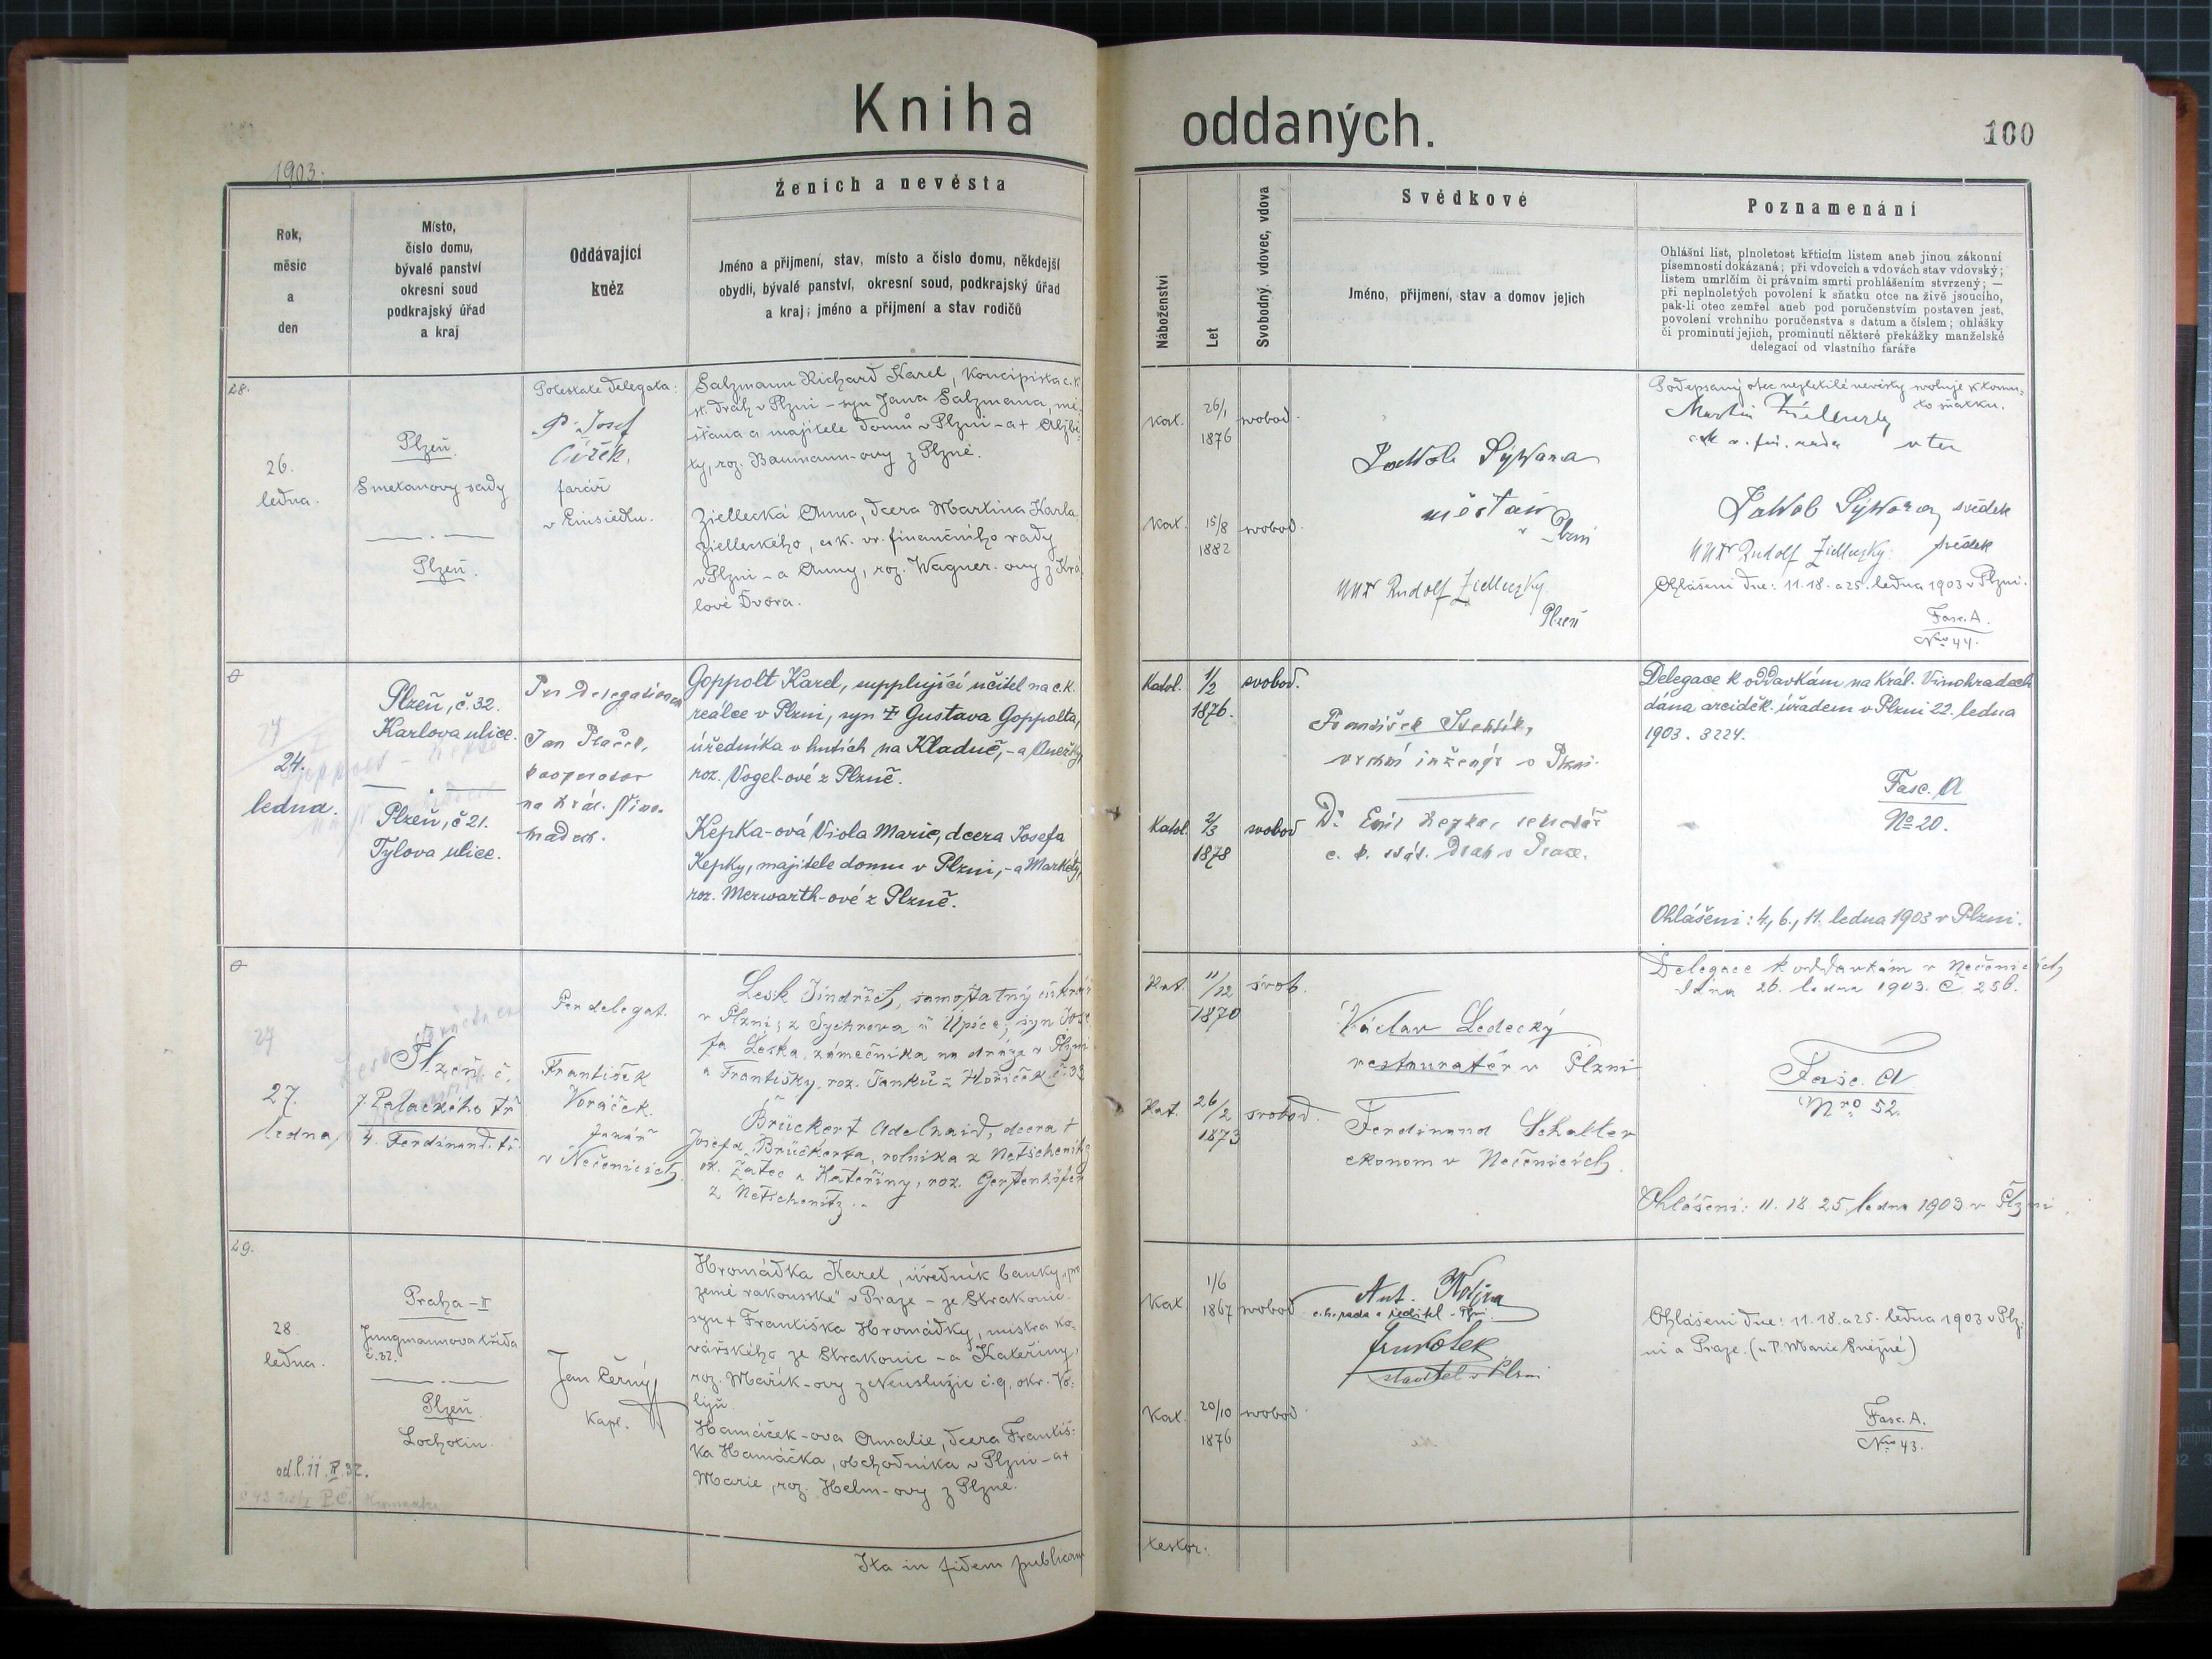 Kniha
oddaných.
100
1903.
Ženich a nevěsta
Rok,
měsíc
a
den
Místo,
číslo domu,
bývalé panství
okresní soud
podkrajský úřad
a kraj
Oddávající
kněz
Jméno a přijmení, stav, místo a číslo domu, někdejší
obydlí, bývalé panství, okresní soud, podkrajský úřad
a kraj; jméno a přijmení a stav rodičů
Náboženství
Let
Svobodný, vdovec, vdova
Svědkové
Jméno, přijmení, stav a domov jejich
Poznamenání
Ohlášní list, plnoletost křticím listem aneb jinou zákonní
písemností dokázaná; při vdovcích a vdovách stav vdovský;
listem umrlčím či právním smrti prohlášením stvrzený; —
při neplnoletých povolení k sňatku otce na živě jsoucího,
pak-li otec zemřel aneb pod poručenstvím postaven jest,
povolení vrchního poručenstva s datum a číslem; ohlášky
či prominutí jejich, prominutí některé překážky manželské
delegací od vlastního faráře
28.
26.
ledna.
Plzeň.
Smetanovy sady
Plzeň.
Potestate delegata:
P. Josef
Čížek,
farář
v Einsiedlu.
Salzmann Richard Karel, koncipista c. k.
st. drah v Plzni – syn Jana Salzmanna, mě-
šťana a majitele domů v Plzni – a + Alžbě-
ty, roz. Baumann-ovy z Plzně.
Ziellecká Anna, dcera Martina Karla
Zielleckého, c. k. vr. finančního rady
v Plzni – a Anny, roz. Wagner-ovy z Krá-
lové Dvora.
Kat.
26/1
1876
svobod.
Kat.
15/8
1882
svobod.
Jakob Sýkora
měšťan
v Plzni
MUDr Rudolf Ziellezky
Plzeň
Podepsaný otec nezletilé nevěsty svoluje k tomu-
to sňatku.
Martin Ziellezky
otec
Jakob Sýkora, svědek
MUDr Rudolf Ziellezky svědek
Ohlášeni dne: 11. 18. a 25. ledna 1903 v Plzni.
Fasc. A.
Nro 44.
24.
ledna.
Plzeň, č. 32.
Karlova ulice.
Plzeň, č 21.
Tylova ulice.
Per delegationem
Jan
kooperator
na Král. Vino-
hradech.
Goppolt Karel, supplující učitel na c. k.
reálce v Plzni, syn + Gustava Goppolta,
úředníka v hutích na Kladně, – a Anežky,
roz. Vogel-ové z Plzně.
Kepka-ová Viola Marie, dcera Josefa
Kepky, majitele domu v Plzni, – a Markéty,
roz. Merwarth-ové z Plzně.
Katol.
1/2
1876.
svobod.
Katol.
2/3
1878
svobod
František
vrchní inženýr v Plzni.
Dr. Emil Kepka, sekretář
c. k. stát. drah v Praze.
Delegace k oddavkám na Král. Vinohradech
dána arciděk. úřadem v Plzni 22. ledna
1903. 3224.
Fasc. A
No 20.
Ohlášeni: 4., 6., 11. ledna 1903 v Plzni.
27.
ledna
Plzeň č.
7. Palackého tř.
4. Ferdinand. tř.
Per delegat.
František
Voráček.
farář
v Nečenicích.
Lesk Jindřich, samostatný cukrář
v Plzni; z Sychrova u Úpice, syn Jose-
fa Leska, zámečníka na dráze v Plzni
a Františky, roz. Janků z Hořiček č. 33
Brückert Adelhaid, dcera +
Josefa Brückerta, rolníka z Netschenitz
ok. Žatec a Kateřiny, roz. Gerstenhöfer
z Netschenitz.
Kat.
11/12
1870
svob.
Kat.
26/2
1873
svobod.
Václav Ledecký
restauratér v Plzni
Ferdinand Schaller
ekonom v Nečenicích.
Delegace k oddavkám v Nečenicích
dána 26. ledna 1903. Č. 256.
Fasc. A
Nro 52.
Ohlášeni: 11. 18. 25. ledna 1903 v Plzni.
29.
28
ledna.
Praha – II
Jungmannova třída
č. 32.
Plzeň.
Lochotín.
Jan Černý
Kapl.
Hromádka Karel, úředník banky „pro
země rakouské“ v Praze – ze Strakonic.
syn + Františka Hromádky, mistra ko-
vářského ze Strakonic – a Kateřiny,
roz. Mařík-ovy z Neuslužic č. 9, okr. Vo-
lyň.
Hamáček-ova Amalie, dcera Františ-
ka Hamáčka, obchodníka v Plzni – a +
Marie, roz. Helm-ovy z Plzně.
Kat.
1/6
1867
svobod
Kat.
20/10
1876
svobod.
Ant.
c. k. rada a ředitel v Plzni
stavitel v Plzni
Ohlášeni dne: 11. 18. a 25. ledna 1903 v Plz-
ni a Praze. (u P. Marie Sněžné)
Fasc. A.
Nro 43.
Ita in fidem publicam
testor: